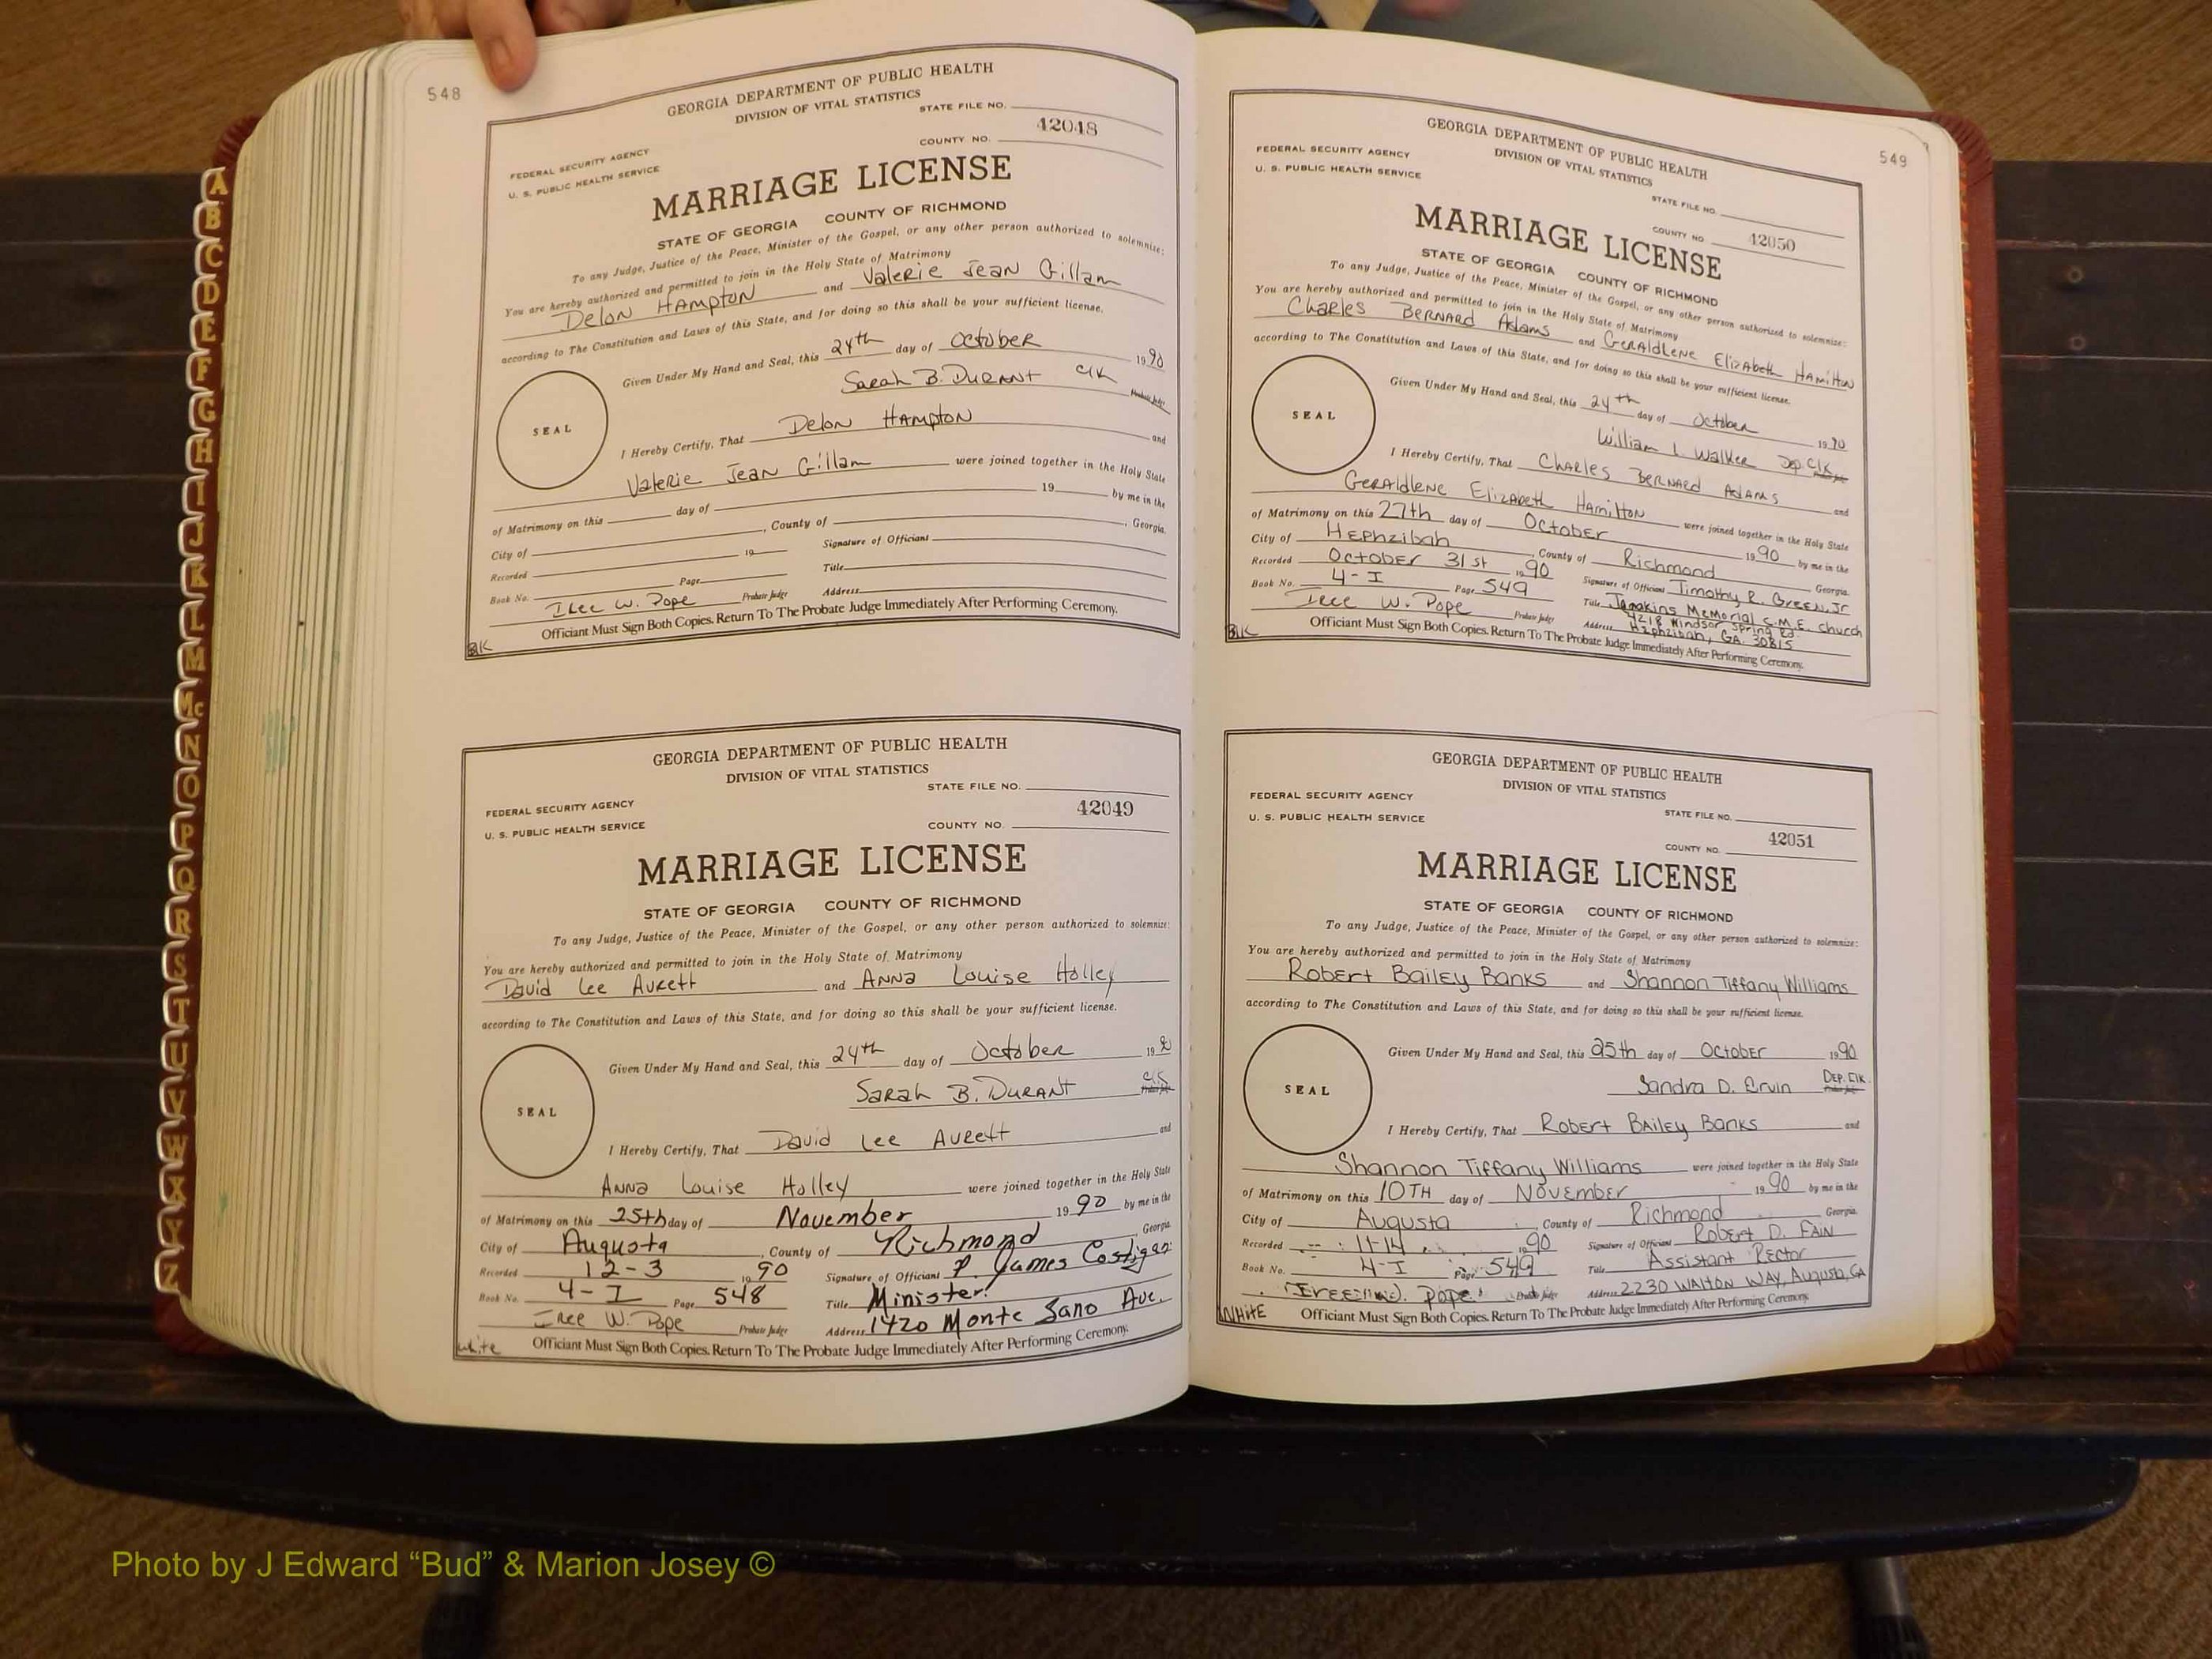 548
GEORGIA DEPARTMENT OF PUBLIC HEALTH
DIVISION OF VITAL STATISTICS
STATE FILE NO.
42048
COUNTY NO.
FEDERAL SECURITY AGENCY
U. S. PUBLIC HEALTH SERVICE
MARRIAGE LICENSE
STATE OF GEORGIA COUNTY OF RICHMOND
To any Judge, Justice of the Peace, Minister of the Gospel, or any other person authorized to solemnize:
You are hereby authorized and permitted to join in the Holy State of Matrimony
Delon HAMPTON and Valerie Jean Gillam
according to The Constitution and Laws of this State, and for doing so this shall be your sufficient license.
Given Under My Hand and Seal, this 24th day of October 1990
Sarah B. DURANT Clk
Probate Judge
SEAL
I Hereby Certify, That Delon HAMPTON and
Valerie Jean Gillam were joined together in the Holy State
of Matrimony on this day of 19 by me in the
City of , County of , Georgia.
Recorded 19 Signature of Officiant
Book No. Page Title
Iree W. Pope Probate Judge Address
Officiant Must Sign Both Copies. Return To The Probate Judge Immediately After Performing Ceremony.
Blk
GEORGIA DEPARTMENT OF PUBLIC HEALTH
DIVISION OF VITAL STATISTICS
STATE FILE NO.
FEDERAL SECURITY AGENCY
42049
U. S. PUBLIC HEALTH SERVICE
COUNTY NO.
MARRIAGE LICENSE
STATE OF GEORGIA COUNTY OF RICHMOND
To any Judge, Justice of the Peace, Minister of the Gospel, or any other person authorized to solemnize:
You are hereby authorized and permitted to join in the Holy State of Matrimony
David Lee Avrett and Anna Louise Holley
according to The Constitution and Laws of this State, and for doing so this shall be your sufficient license.
Given Under My Hand and Seal, this 24th day of October 1990
Sarah B. DURANT Clk
SEAL
I Hereby Certify, That David Lee Avrett and
Anna Louise Holley were joined together in the Holy State
of Matrimony on this 25th day of November 1990 by me in the
City of Augusta , County of Richmond , Georgia
Recorded 12-3 1990 Signature of Officiant P. James Costigan
Book No. 4-I Page 548 Title Minister
Iree W. Pope Probate Judge Address 1420 Monte Sano Ave.
Officiant Must Sign Both Copies. Return To The Probate Judge Immediately After Performing Ceremony.
white
549
GEORGIA DEPARTMENT OF PUBLIC HEALTH
DIVISION OF VITAL STATISTICS
FEDERAL SECURITY AGENCY
U. S. PUBLIC HEALTH SERVICE
STATE FILE NO.
COUNTY NO. 42050
MARRIAGE LICENSE
STATE OF GEORGIA COUNTY OF RICHMOND
To any Judge, Justice of the Peace, Minister of the Gospel, or any other person authorized to solemnize:
You are hereby authorized and permitted to join in the Holy State of Matrimony
Charles BERNARD Adams and GERAldLene Elizabeth Hamilton
according to The Constitution and Laws of this State, and for doing so this shall be your sufficient license.
Given Under My Hand and Seal, this 24th day of October 1990
William L. Walker Dep. Clk
SEAL
I Hereby Certify, That CHARLES BERNARD ADAMS and
GERAldLENE Elizabeth Hamilton were joined together in the Holy State
of Matrimony on this 27th day of October 1990 by me in the
City of Hephzibah , County of Richmond Georgia.
Recorded October 31st 1990 Signature of Officiant Timothy R. Green, Jr
Book No. 4-I Page 549 Title Jenakins Memorial C.M.E. Church
Iree W. Pope Probate Judge Address 4218 Windsor Spring Rd.
Hephzibah, GA. 30815
Officiant Must Sign Both Copies. Return To The Probate Judge Immediately After Performing Ceremony.
Blk
GEORGIA DEPARTMENT OF PUBLIC HEALTH
DIVISION OF VITAL STATISTICS
FEDERAL SECURITY AGENCY
STATE FILE NO.
U. S. PUBLIC HEALTH SERVICE
42051
COUNTY NO.
MARRIAGE LICENSE
STATE OF GEORGIA COUNTY OF RICHMOND
To any Judge, Justice of the Peace, Minister of the Gospel, or any other person authorized to solemnize:
You are hereby authorized and permitted to join in the Holy State of Matrimony
Robert Bailey Banks and Shannon Tiffany Williams
according to The Constitution and Laws of this State, and for doing so this shall be your sufficient license.
Given Under My Hand and Seal, this 25th day of October 1990
Sandra D. Ervin Dep. Clk.
SEAL
I Hereby Certify, That Robert Bailey Banks and
Shannon Tiffany Williams were joined together in the Holy State
of Matrimony on this 10TH day of November 1990 by me in the
City of Augusta , County of Richmond Georgia.
Recorded 11-14 1990 Signature of Officiant Robert D. FAIN
Book No. 4-I Page 549 Title Assistant Rector
Iree W. Pope Probate Judge Address 2230 WALTON WAY, Augusta, GA
Officiant Must Sign Both Copies. Return To The Probate Judge Immediately After Performing Ceremony.
WHITE
A
B
C
D
E
F
G
H
I
J
K
L
M
Mc
N
O
P
Q
R
S
T
U
V
W
X
Y
Z
Photo by J Edward “Bud” & Marion Josey ©